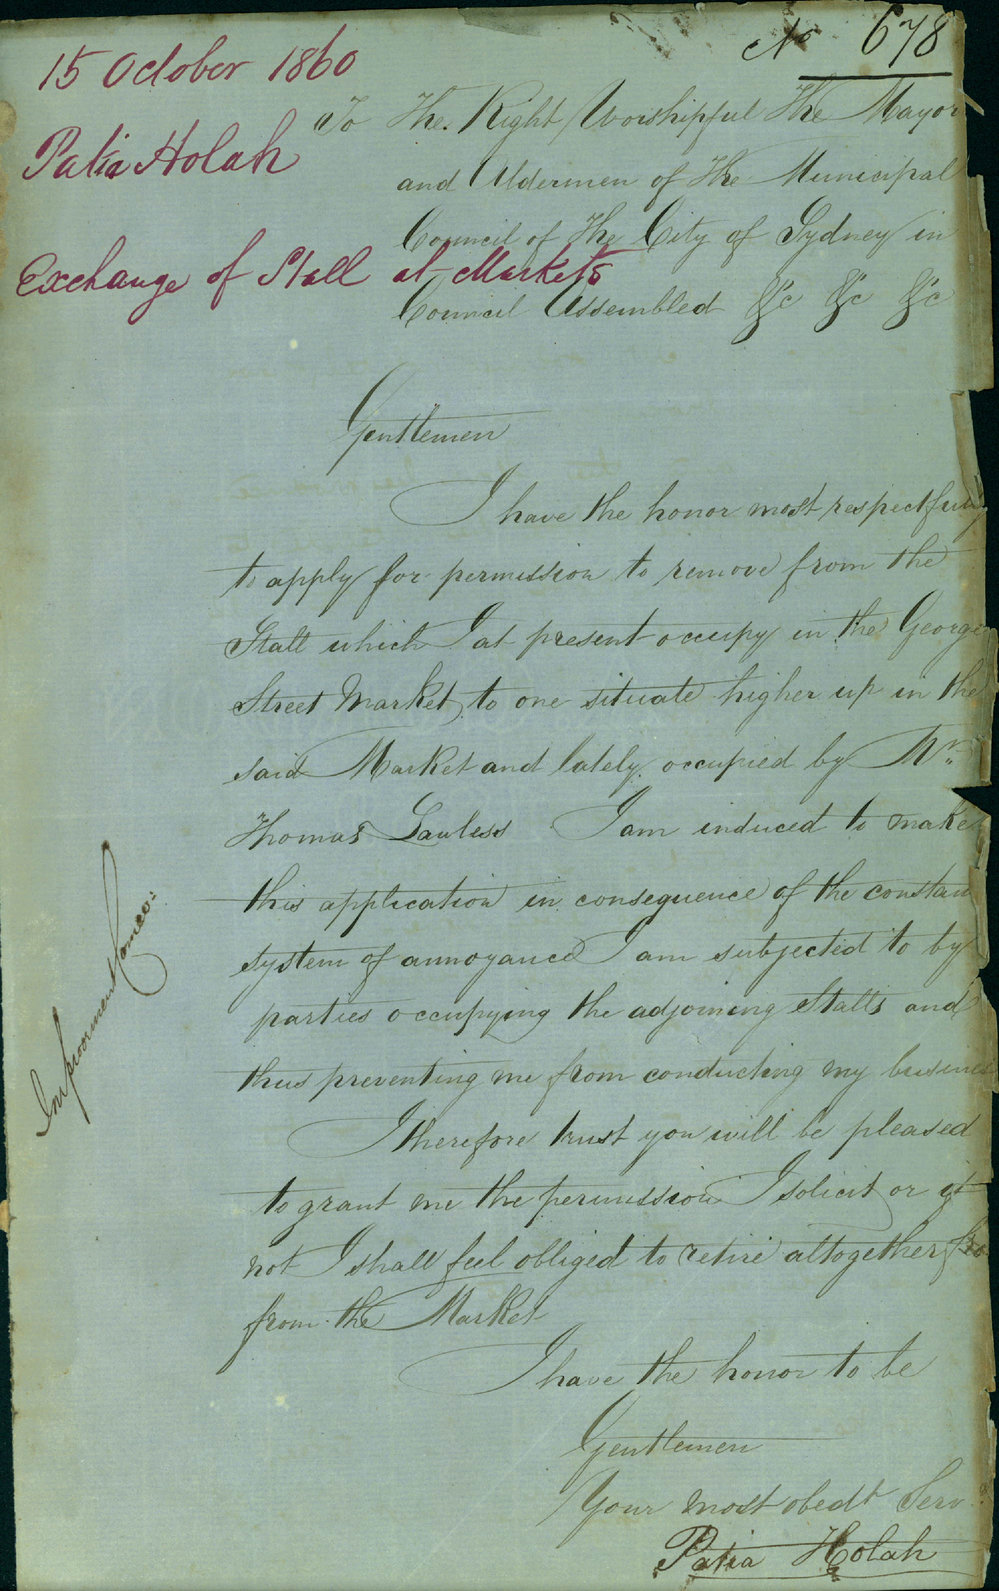 No 678
15 October 1860
Patia Holah
Exchange of Stall at Markets
To The Right Worshipful The Mayor
and Aldermen of The Municipal
Council of The City of Sydney in
Council Assembled &c &c &c
Gentlemen
I have the honor most respectfully
to apply for permission to remove from the
Stall which I at present occupy in the George
Street Market, to one situate higher up in the
said Market and lately occupied by Mr
Thomas Lawless I am induced to make
this application in consequence of the constan
system of annoyance I am subjected to by
parties occupying the adjoining Stalls and
thus preventing me from conducting my busines
I therefore trust you will be pleased
to grant me the permission I solicit or if
not I shall feel obliged to retire altogether fro
from the Market
I have the honor to be
Gentlemen
Your most obedt Serv
Patia Holah
Improvement Comee: